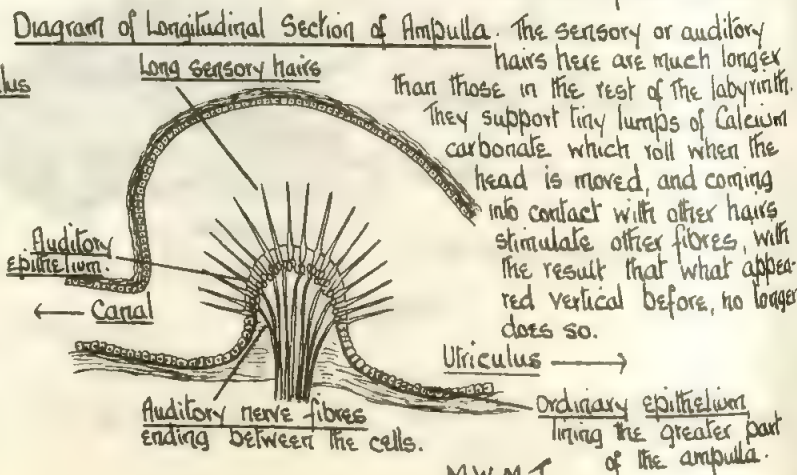 Diagram of Longitudinal Section of Ampulla. The sensory or auditory
hairs here are much longer
than those in the rest of the labyrinth.
They support tiny lumps of Calcium
carbonate which roll when the
head is moved, and coming
into contact with other hairs
stimulate other fibres, with
the result that what appea-
red vertical before, no longer
does so.
lus
Long sensory hairs
Auditory
epithelium.
← Canal
Utriculus →
Auditory nerve fibres
ending between the cells.
Ordinary epithelium
lining the greater part
of the ampulla.